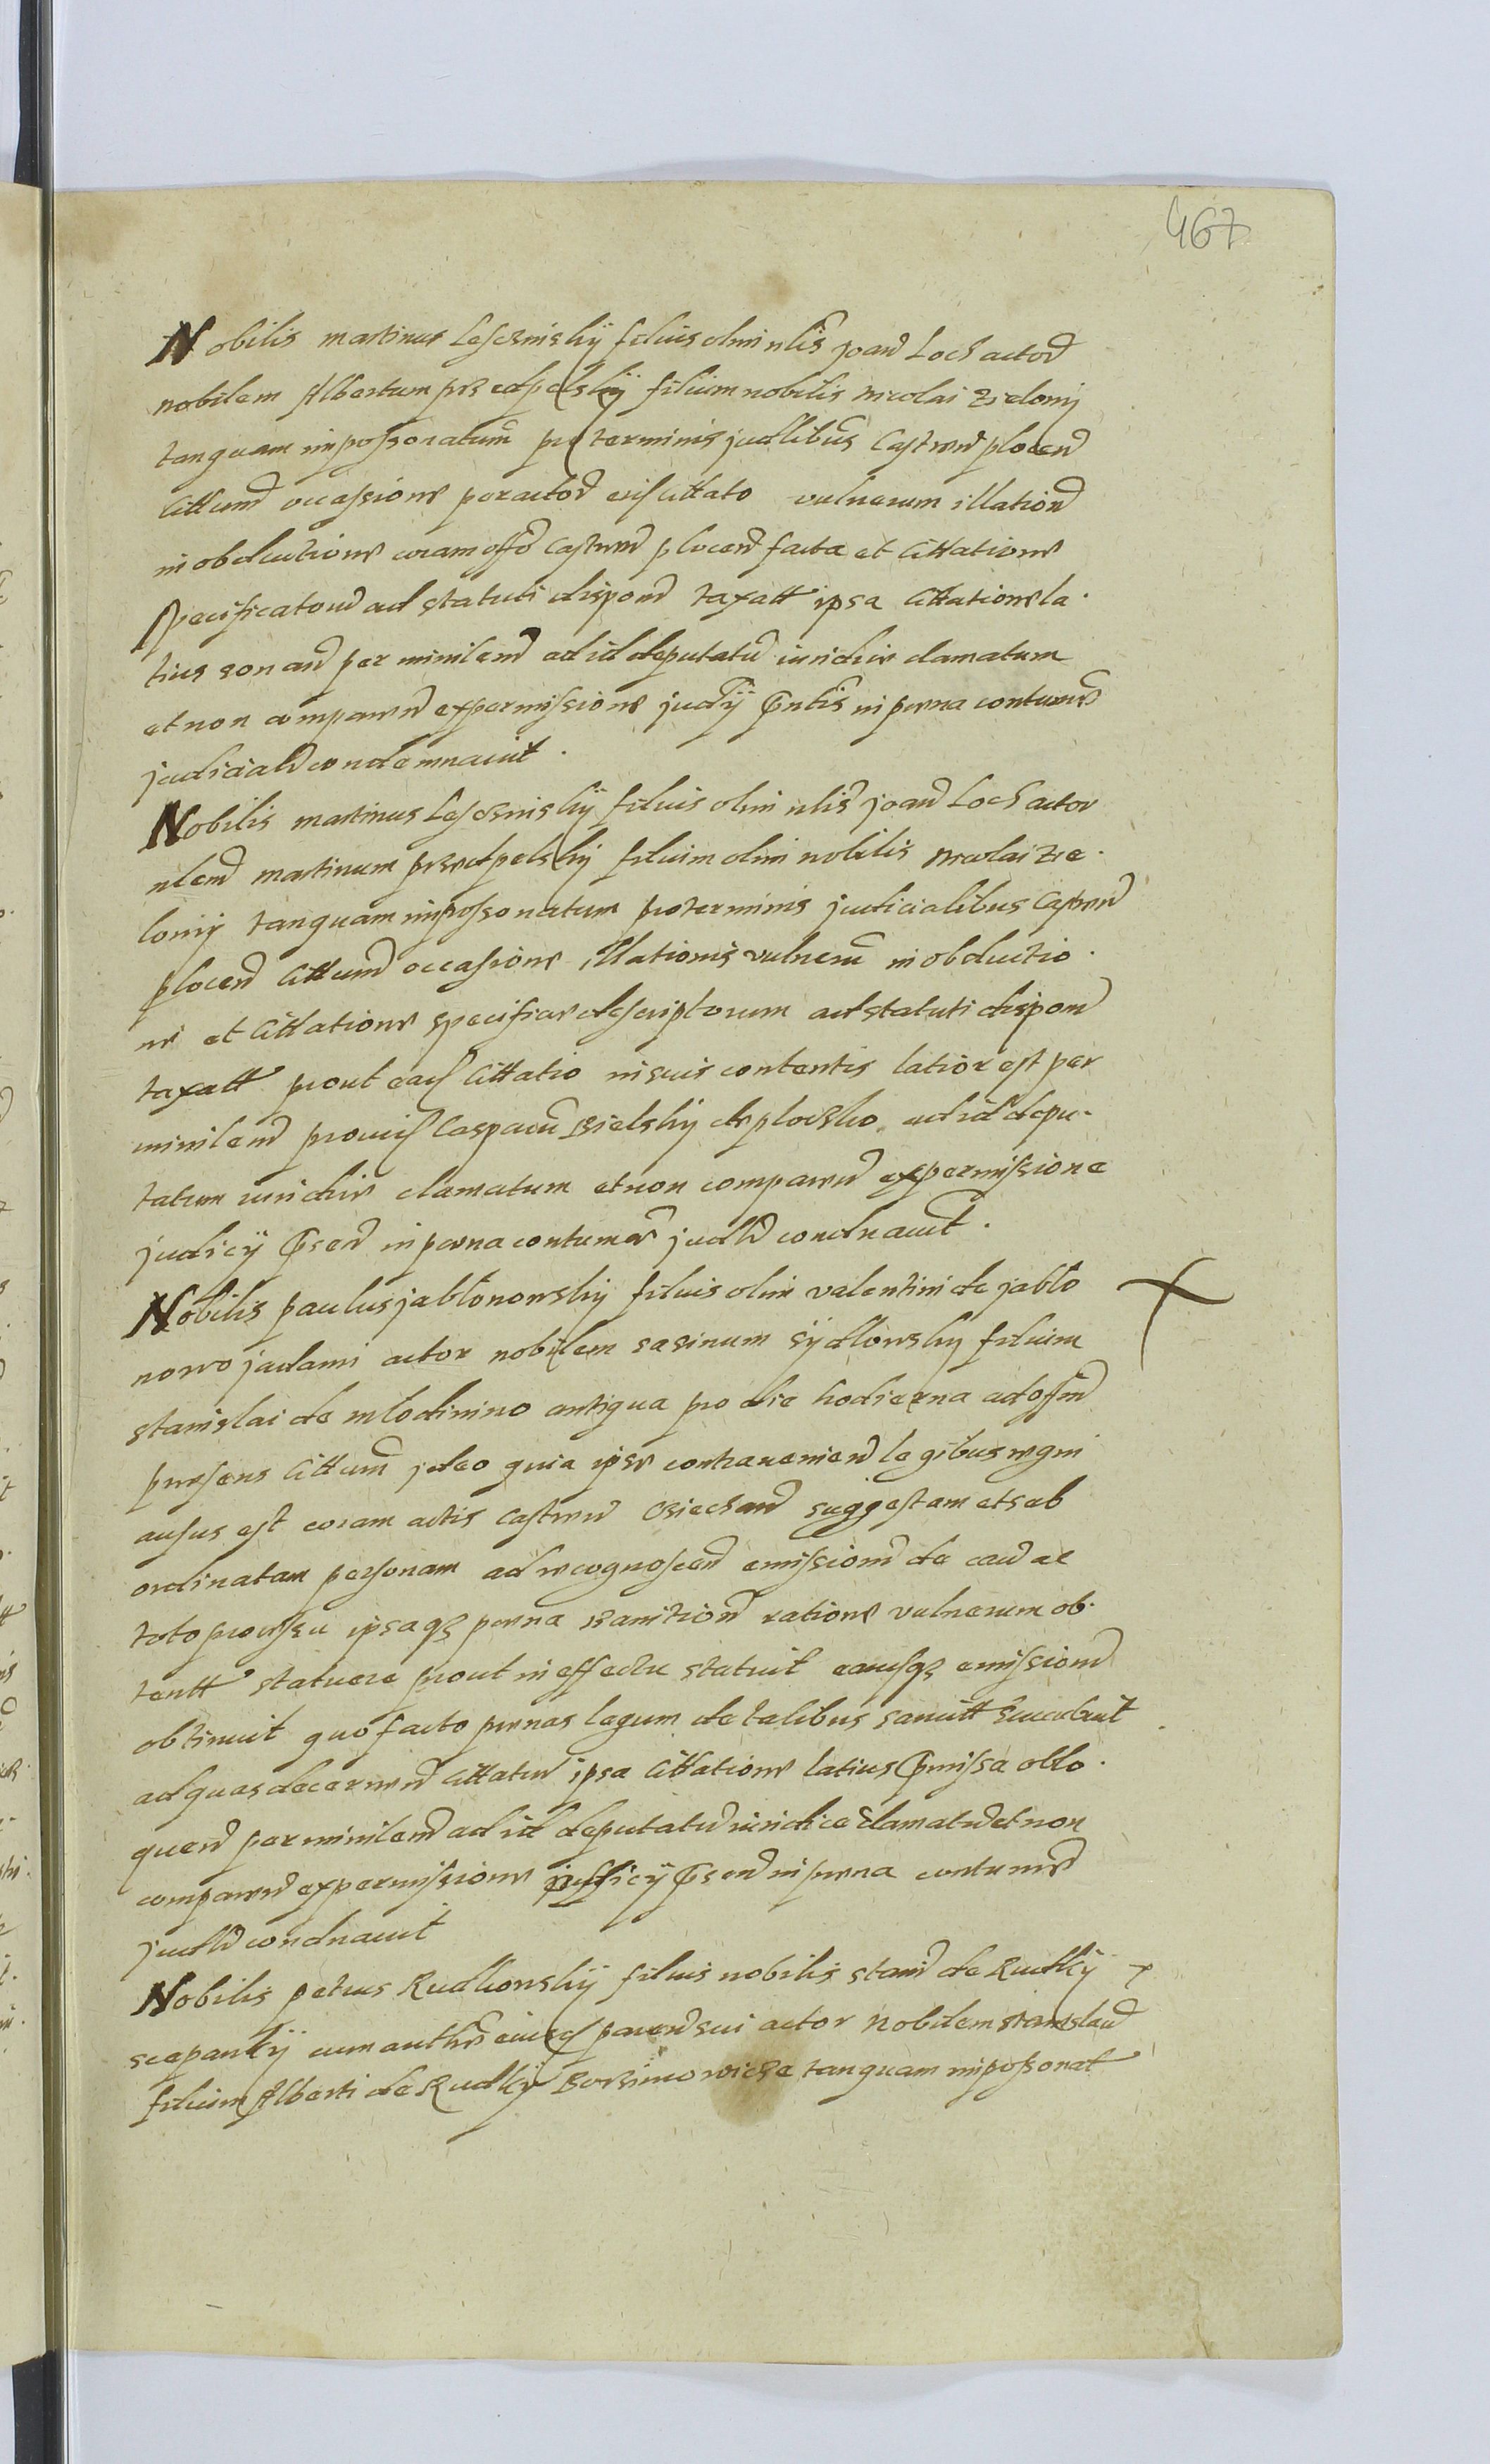 467
Nobilis martinus Lesczinskÿ filius olim nlis joan Loch actor
nobilem Albertum przedpelskÿ filium nobilis nicolai Zielonÿ
tanquam impossonatum pro terminis judlibus Castren plocen
Cittum occassione per actor eiusd cittato vulnerum illation
in obductione coram offo Castren plocen facta et Cittatione
specificatorum ad statuti dispon taxatt ipsa Cittatione la.
tius sonan per minilem ad id deputatum iuridice clamatum
et non comparen ex permissione judÿ pntis in poena contumae
judiciali condemnavit.
Nobilis martinus Lesczinskÿ filius olim nlis joan Loch actor
nlem martinum przedpelskÿ filium olim nobilis nicolai Zie.
lonÿ tanquam impossonatum pro terminis judicialibus Castren
plocen Cittum occasione illationis vulnerum in obductio.
ne et Cittatione specifice descriptorum ad statuti dispon
taxatt prout ead Cittatio in suis contentis latior est per
minilem provid Casparum Bielskÿ de ploczko ad id depu-
tatum iuridice clamatum et non comparen ex permissione
judicÿ psen in poena contumae judli condnavit.
Nobilis paulus jablonowskÿ filius olim valentini de jablo
nowo jadami actor nobilem sasinum sÿdlowskÿ filium
stanislai de mlodinino antiqua pro die hodierna ad offm
praesens Cittum ideo quia ipse contravenien legibus regni
ausus est coram actis Castren Ciechan suggestam et sub
ordinatam personam ad recognoscen emissionem de cau ac
toto processu ipsaqz poena banition ratione vulnerum ob.
tentt statuere prout in effectu statuit eamqz emissionem
obtinuit quo facto poenas legum de talibus sancitt succubuit
ad quas decernen Cittatur ipsa Cittatione latius pmissa ollo.
quen per minilem ad id deputatum iuridice clamatum et non
comparen ex permissione officÿ psen in poena contumae
judli condnavit
Nobilis petrus Rudkowskÿ filius nobilis stani de Rudkÿ
sczepankÿ cum auth eiusd paren sui actor nobilem stanislaum
filium Alberti de Rudkÿ Borzimowicze tanquam impossonat